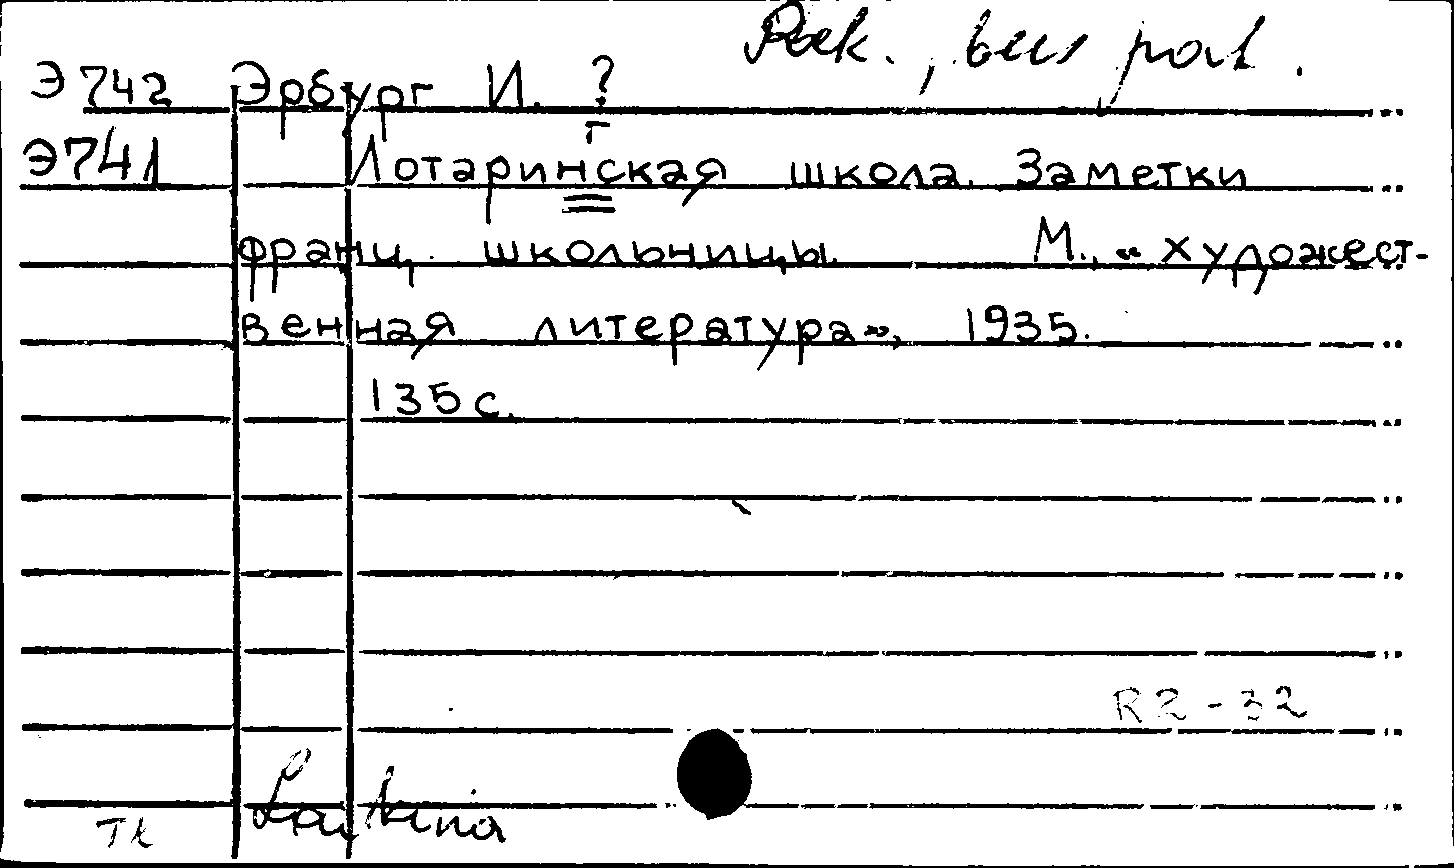 Э742 Эрбург И. ?
Э741 Лотаринская школа. Заметки
г
франц. школьницы. М., «художест-
венная литература», 1935.
135 с.
R2-32
Tk